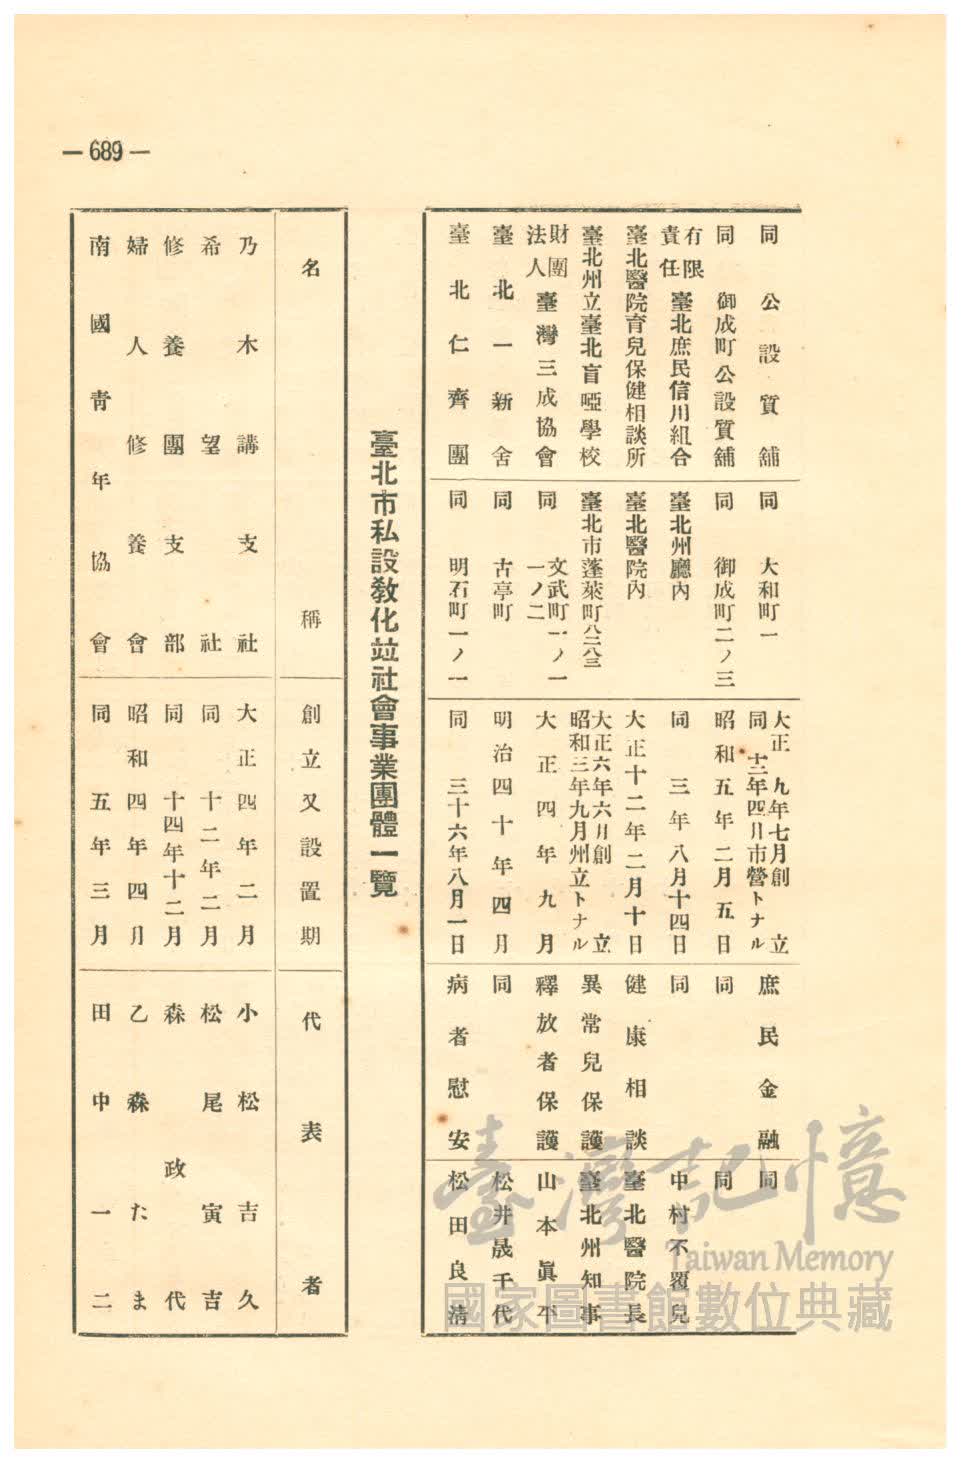 — 689 —
同公設質舖 同大和町一 大正九年七月創立 同十二年四月市營トナル 庶民金融 同
同御成町公設質舖 同御成町二ノ三 昭和五年二月五日 同 同
有限責任臺北庶民信用組合 臺北州廳內 同三年八月十四日 同 中村不覊兒
臺北醫院育兒保健相談所 臺北醫院內 大正十二年二月十日 健康相談 臺北醫院長
臺北州立臺北盲啞學校 臺北市蓬萊町八二八三 大正六年六月創立 昭和三年九月州立トナル 異常兒保護 臺北州知事
財團法人臺灣三成協會 同文武町一ノ一一ノ二 大正四年九月 釋放者保護 山本眞平
臺北一新舍 同古亭町 明治四十年四月 同 松井晟千代
臺北仁齊團 同明石町一ノ一 同三十六年八月一日 病者慰安 松田良淸
臺北市私設敎化竝社會事業團體一覽
名稱 創立又設置期 代表者
乃木講支社 大正四年二月 小松吉久
希望社 同十二年二月 松尾寅吉
修養團支部 同十四年十二月 森政代
婦人修養會 昭和四年四月 乙森たま
南國靑年協會 同五年三月 田中一二
臺灣記憶
Taiwan Memory
國家圖書館數位典藏